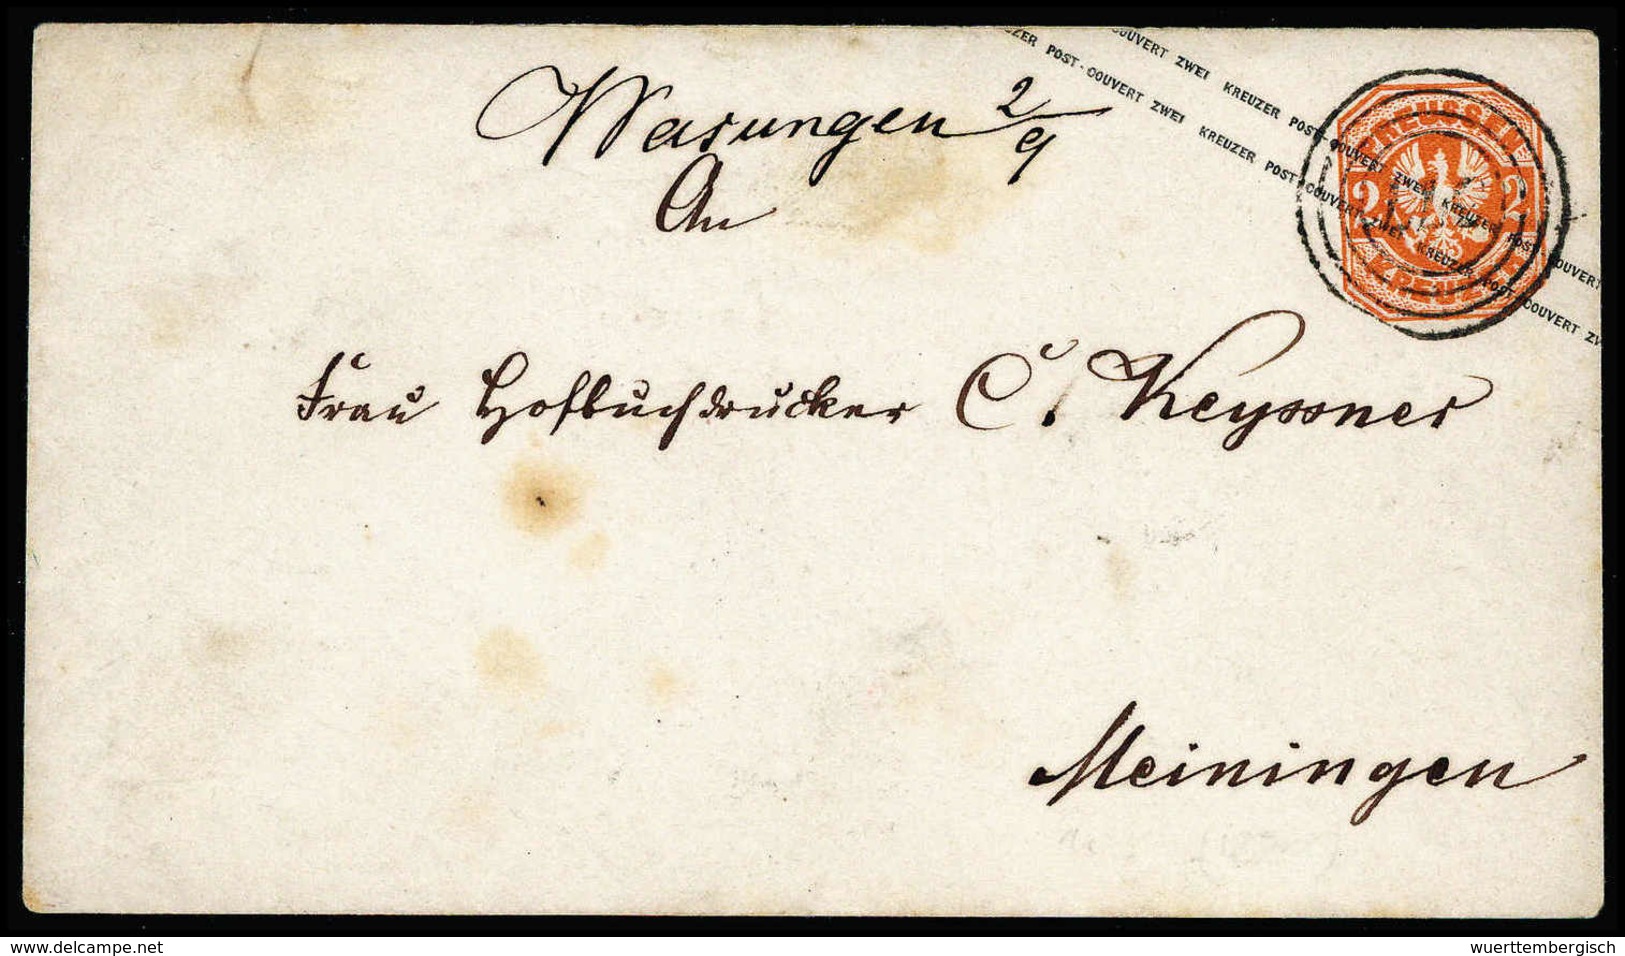 ZER POST-COUVERT ZWEI KREUZER POST-COUVERT ZWEI KREUZER POST-COUVERT ZW
OUVERT ZWEI KREUZER POST-COUVERT ZWEI KREUZER POST-COUVERT
PREUSSEN
2 2
KREUZER
Wasungen 2/9
An
Frau Hofbuchdrucker C. Keyssner
Meiningen
www.delcampe.net
wuerttembergisch